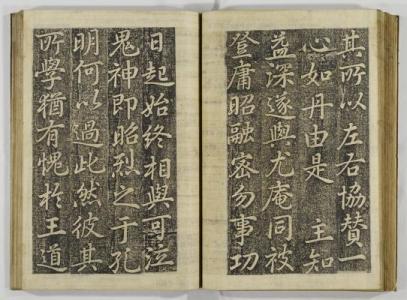 其所以左右協賛一
心如丹由是　主知
益深遂與尤庵同被
登庸昭融密勿事功
日起始終相與可泣
鬼神即昭烈之于孔
明何以過此然彼其
所學猶有愧於王道